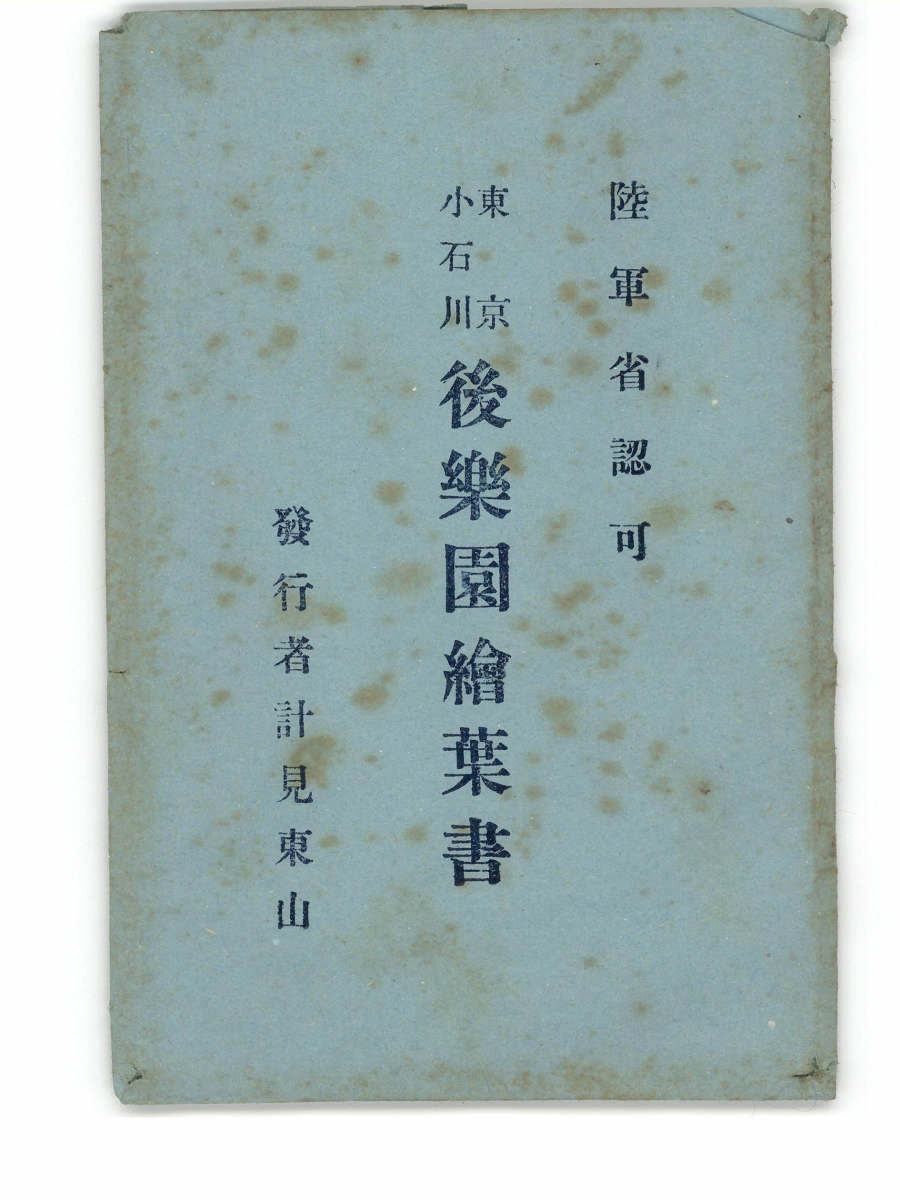 陸軍省認可
東京
小石川
後樂園繪葉書
發行者計見東山